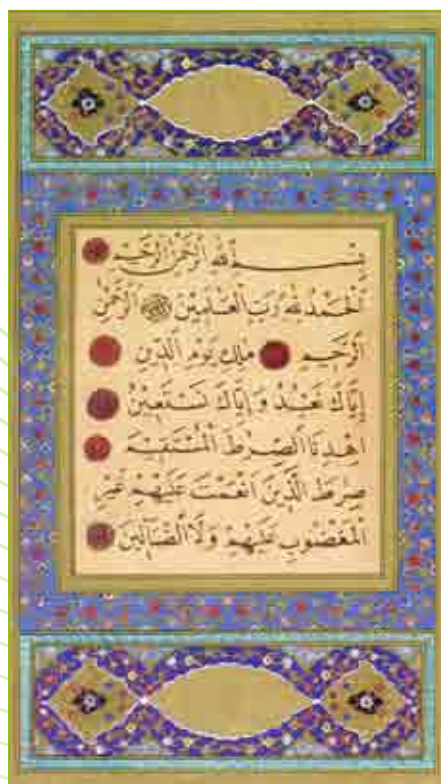 بِسْمِ اللهِ الرَّحْمٰنِ الرَّحِيْمِ
اَلْحَمْدُ لِلهِ رَبِّ الْعَالَمِيْنَ الرَّحْمٰنِ
الرَّحِيْمِ مٰلِكِ يَوْمِ الدِّيْنِ
اِيَّاكَ نَعْبُدُ وَاِيَّاكَ نَسْتَعِيْنُ
اِهْدِنَا الصِّرٰطَ الْمُسْتَقِيْمَ
صِرٰطَ الَّذِيْنَ اَنْعَمْتَ عَلَيْهِمْ غَيْرِ
الْمَغْضُوْبِ عَلَيْهِمْ وَلَا الضَّآلِّيْنَ